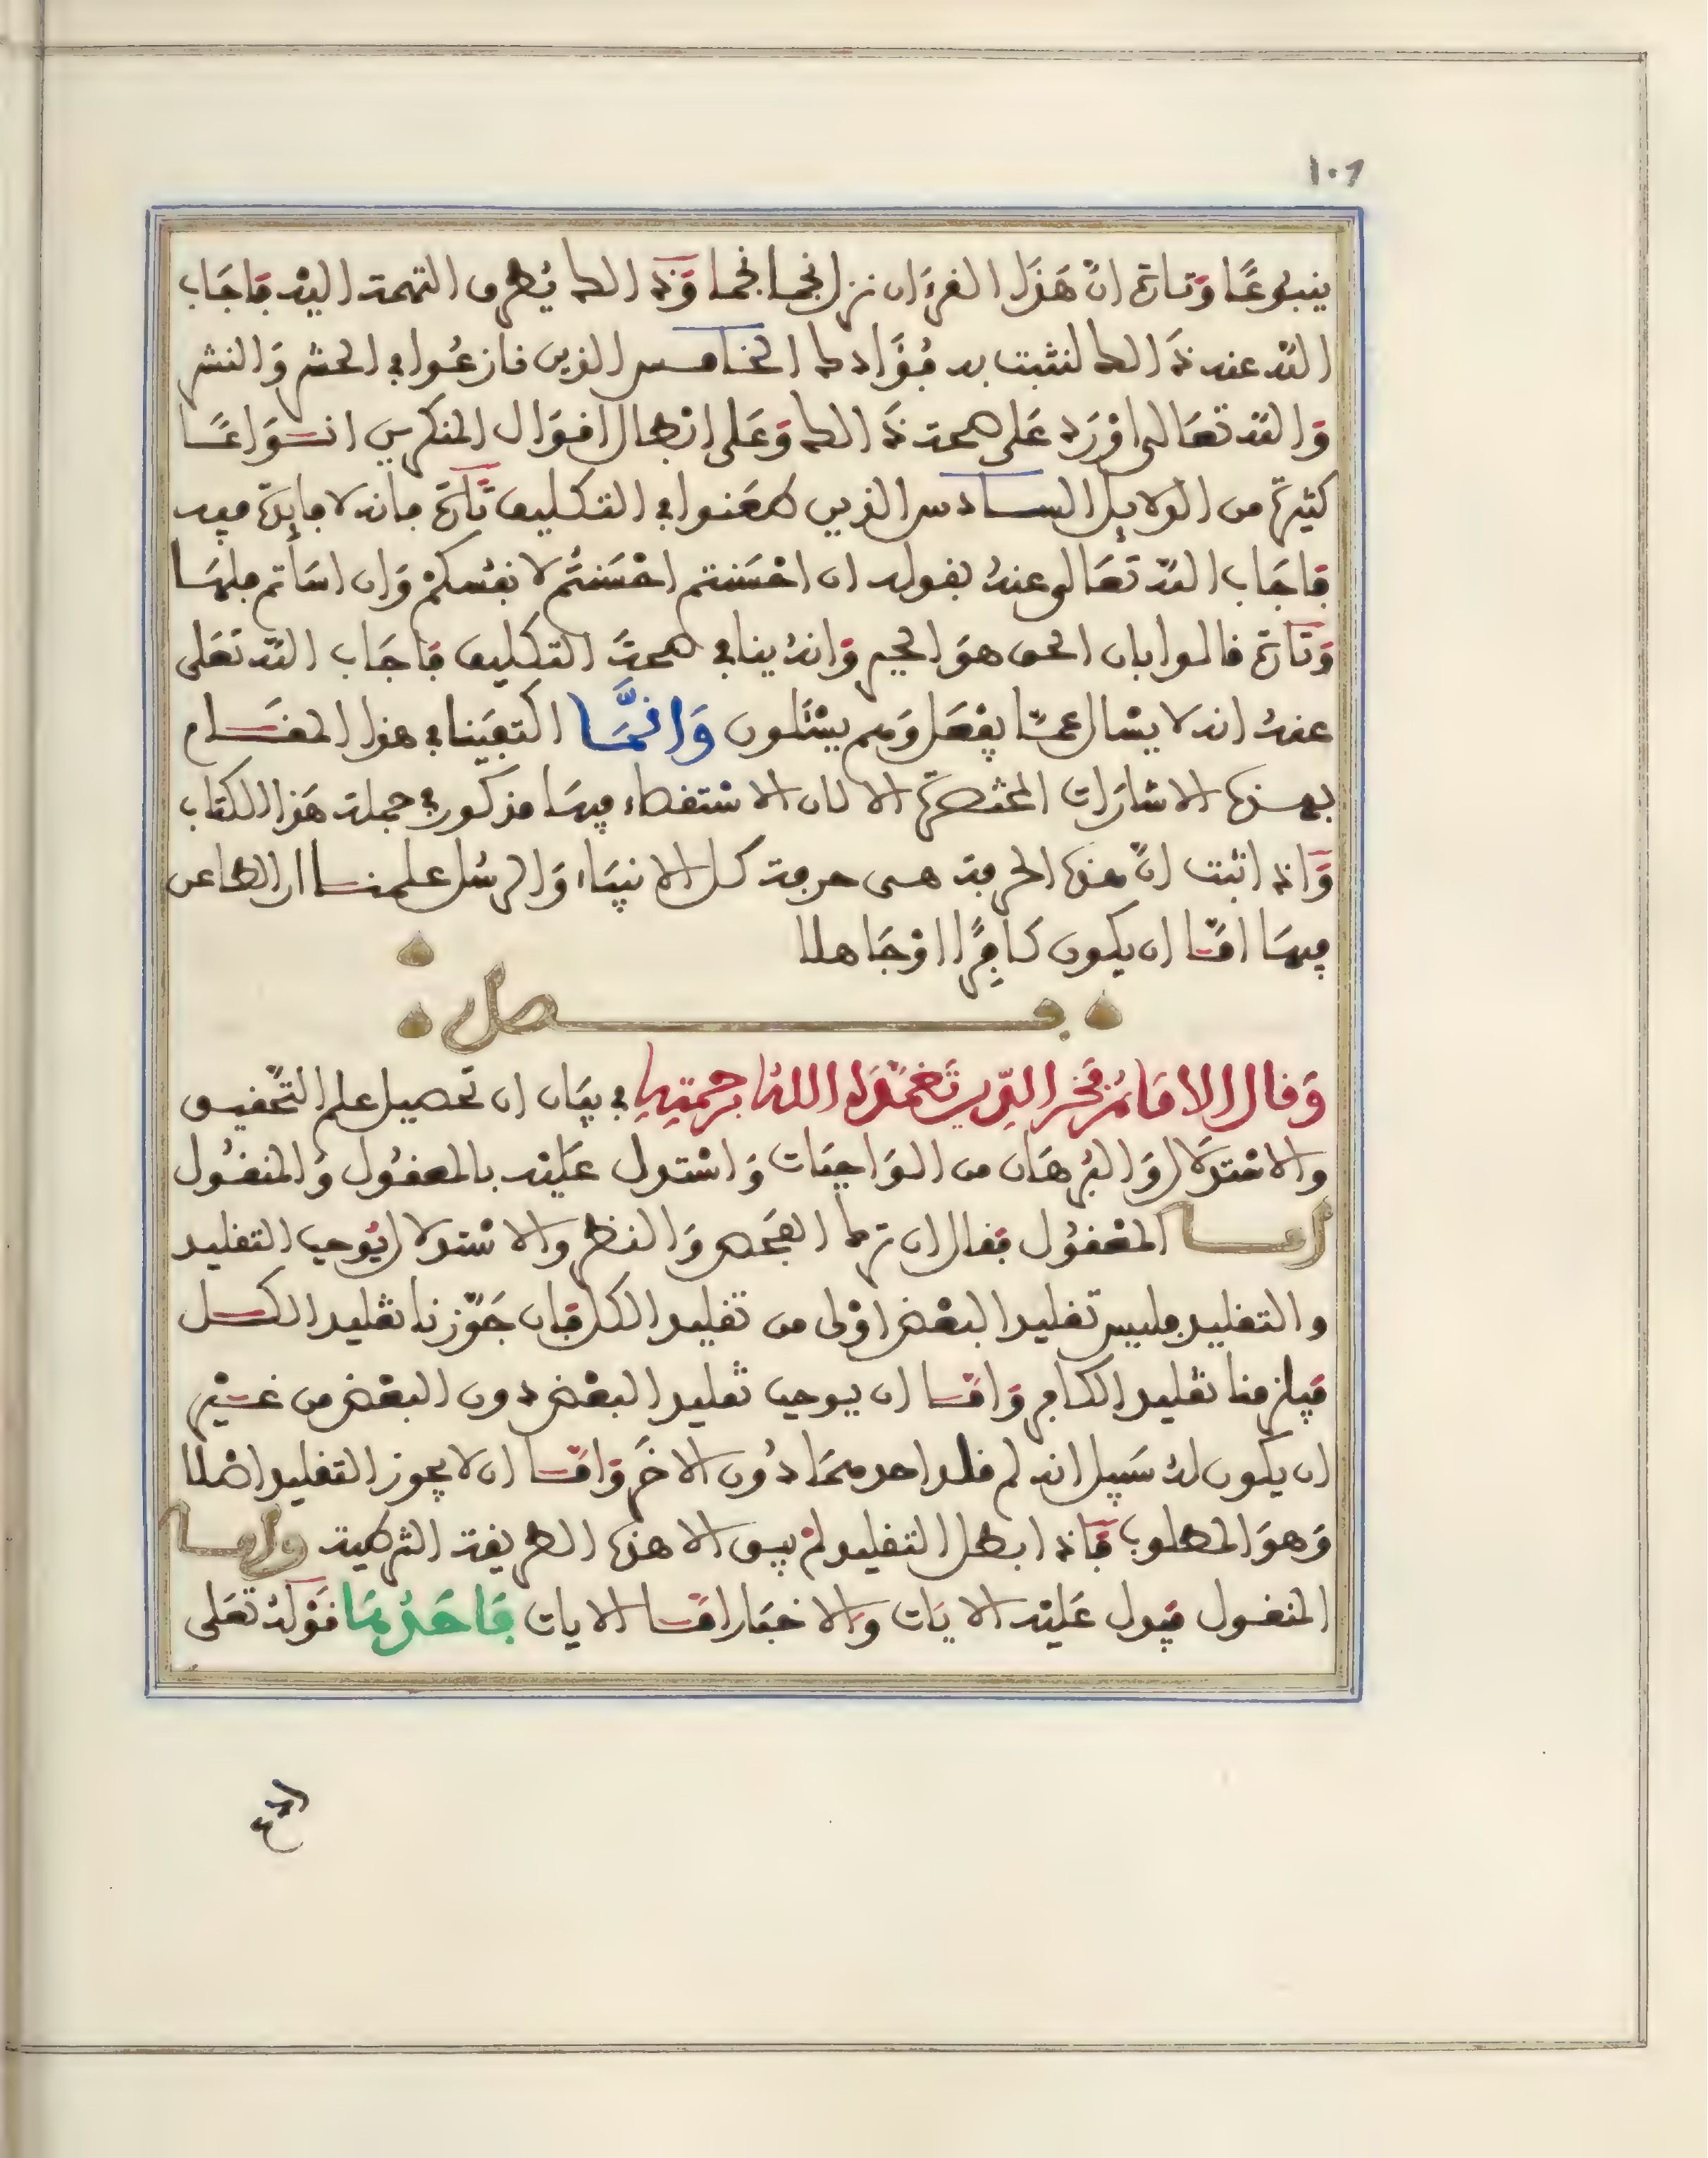 ١٠٦
ينبوعًا وَتارة انّ هَذا القرءَان نزل نجما نجما وَذَالك يُطرق التهمة اليْه فَاجَاب
اللّه عنه ذَالك لنثبت به فُؤَادك الخامس الذين نازعُوا في الحشر وَالنشر
وَاللّه تعَالى اوْرَد عَلى صحة ذَالك وَعَلى ابْطال اقوَال المنكرين انوَاعًا
كثيرة من الدلايل السادس الذين طعَنوا في التكليف تَارَة بانه لا فايدَة فيه
فاجَاب اللّه تَعَالى عنهُ بقوله ان احْسَنتم احْسَنتُم لانفسكمْ وَان اسَأتم فلهَا
وَتَارة قالوا بان الحق هوَ الجبر وَانهُ ينافي صحةَ التكليف فاجَاب اللّه تَعَلى
عنهُ انه لا يسْال عمّا يفْعَل وَهم يسْئَلون وَانمَّا اكتفَينا في هذا المقَام
بهذه الاشارَات المختصرة لان الاستقصاء فيهَا مذكور في جملة هَذا الكتاب
وَاذا ثبت انّ هذه الحرفة هى حرفة كل الانبيَاء وَالرسُل علمنا ان الطاعن
فيهَا امّا ان يكون كافِرًا اوْ جَاهلا
فصل
وَقال الامَامُ فَخر الدّين تَغمّدَهُ اللهُ برحمتِهِ في بيَان ان تَحصيل علم التَّحقيق
والاسْتدلَال وَالبُرهَان من الوَاجبَات وَاسْتدل عَليْه بالمعقُول وَالمنقُول
امـا المعْقُول فقال ان ترك الفَحص وَالنظر والاسْتدلال يُوجب التقليد
والتقليد فليس تقليد البعْض اوْلى من تقليد الكل فان جَوّزنا تقليد الكل
فيلزمنا تقليد الكافر وَامّا ان يوجب تقليد البعْض دون البعْض من غيْر
ان يكون لهُ سَبيل انه لم قلد احدهمَا دُون الاخَر وَامّا ان لا يجوز التقليد اصْلا
وَهوَ المطلوب فَاذا بطل التقليد لمْ يبق الا هذه الطريقة النظرية وامـا
المنقول فيدل عَليْه الايَات وَالاخبَار امّا الايات فَاحَدُهَا قوْلهُ تعَلى